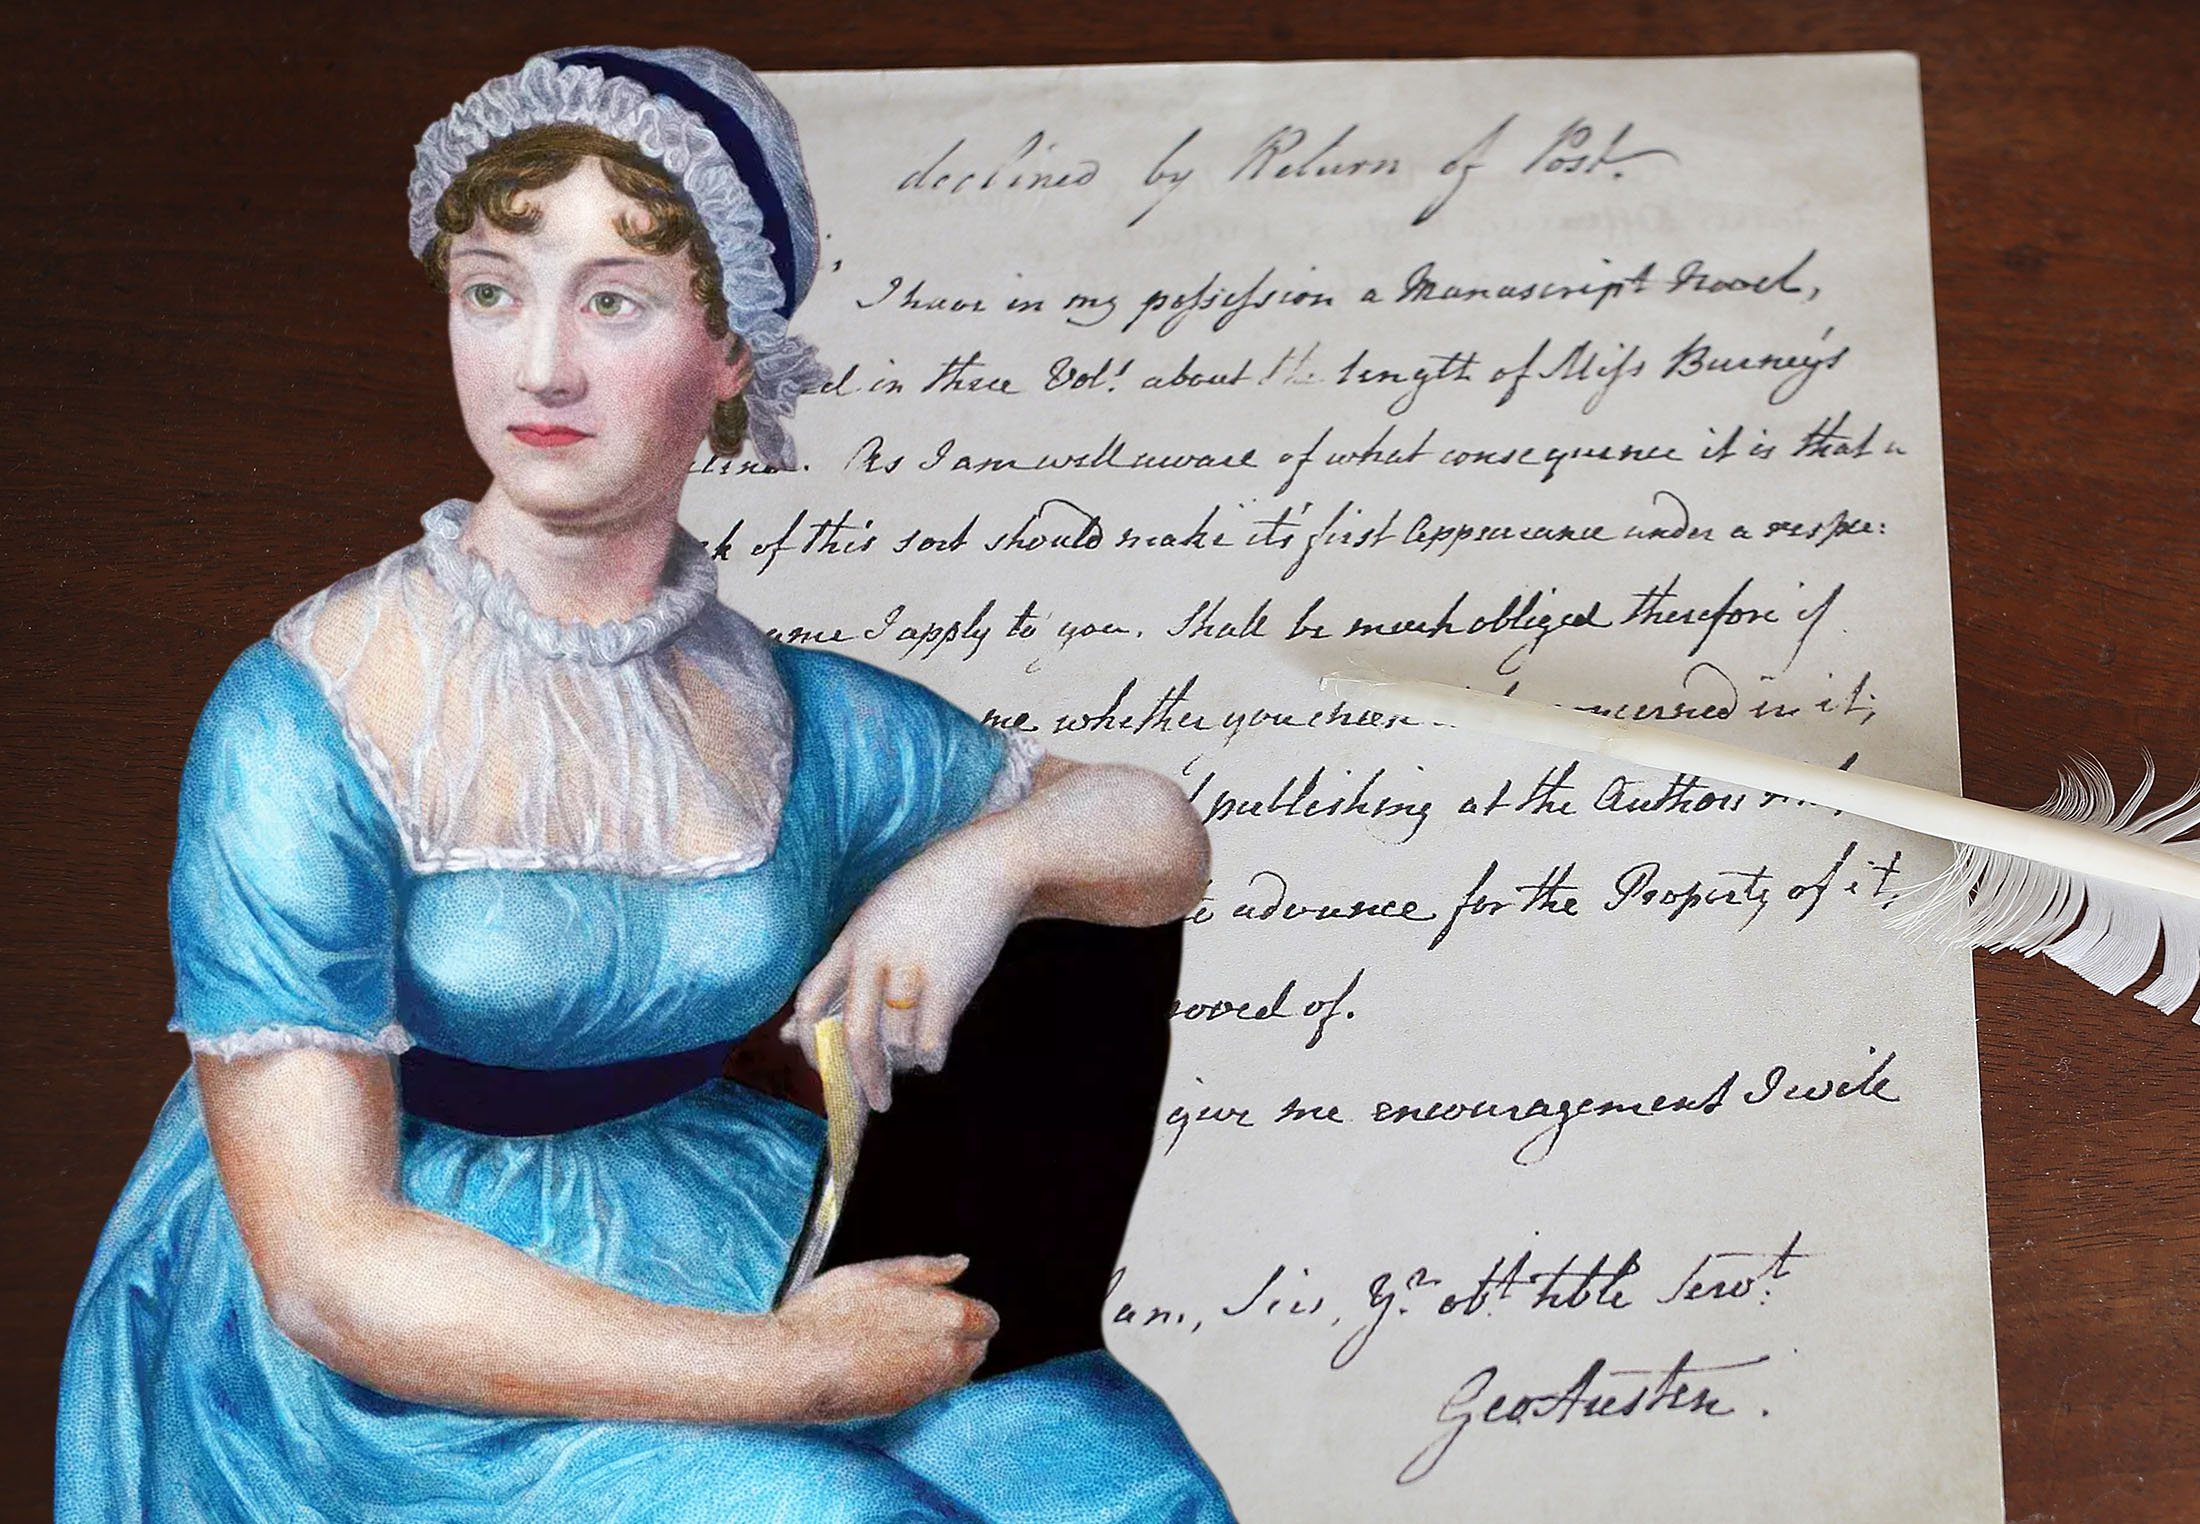 declined by Return of Post.
I have in my possession a Manuscript Novel,
ed in three Vols. about the length of Miss Burney's
elina. As I am well aware of what consequence it is that a
rk of this sort should make it's first Appearance under a respec:
ame I apply to you. Shall be much obliged therefore if
me whether you chuse concerned in it;
publishing at the Author's
to advance for the Property of it,
roved of.
give me encouragement I will
am, Sir, Yr. obt. hble Servt.
Geo Austen.